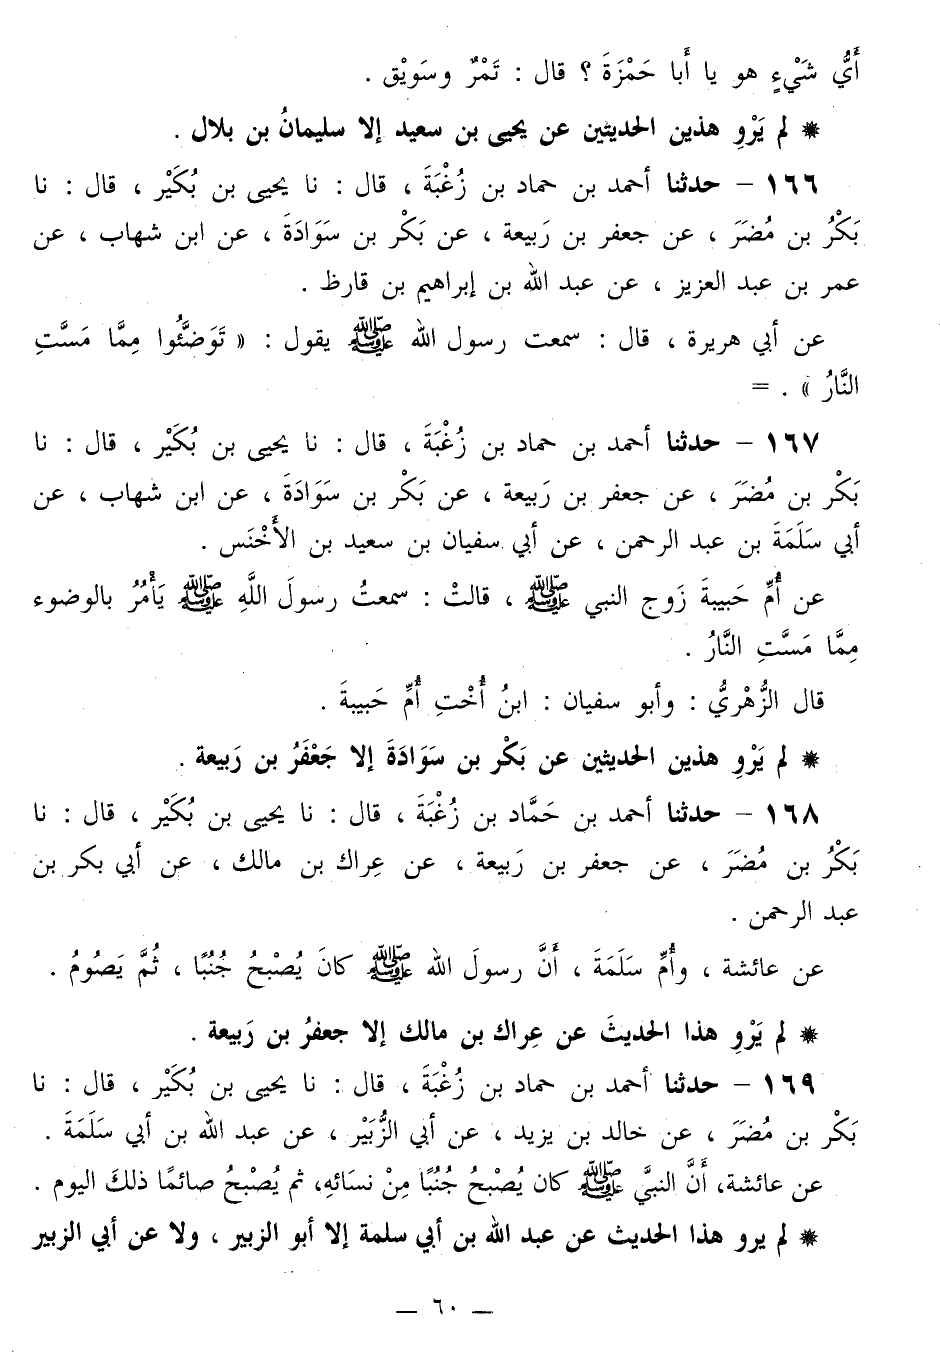 أَيُّ شَيْءٍ هو يا أَبا حَمْزَةَ ؟ قال : تَمْرٌ وسَوِيْق .
* لم يَرْوِ هذين الحديثين عن يحيى بن سعيد إلا سليمانُ بن بلال .
١٦٦ – حدثنا أحمد بن حماد بن زُغْبَةَ ، قال : نا يحيى بن بُكَيْر ، قال : نا
بَكْرُ بن مُضَرَ ، عن جعفر بن رَبيعة ، عن بَكْر بن سَوَادَةَ ، عن ابن شهاب ، عن
عمر بن عبد العزيز ، عن عبد الله بن إبراهيم بن قارظ .
عن أبي هريرة ، قال : سمعت رسول الله ﷺ يقول : « تَوَضَّئُوا مِمَّا مَسَّتِ
النَّارُ » . =
١٦٧ – حدثنا أحمد بن حماد بن زُغْبَةَ ، قال : نا يحيى بن بُكَيْر ، قال : نا
بَكْر بن مُضَرَ ، عن جعفر بن رَبيعة ، عن بَكْر بن سَوَادَةَ ، عن ابن شهاب ، عن
أبي سَلَمَةَ بن عبد الرحمن ، عن أبي سفيان بن سعيد بن الأَخْنَس .
عن أُمِّ حَبيبةَ زَوج النبي ﷺ ، قالتْ : سمعتُ رسولَ اللَّهِ ﷺ يَأْمُرُ بالوضوء
مِمَّا مَسَّتِ النَّارُ .
قال الزُّهْريُّ : وأبو سفيان : ابنُ أُخْتِ أُمِّ حَبيبةَ .
* لم يَرْوِ هذين الحديثين عن بَكْر بن سَوَادَةَ إلا جَعْفَرُ بن رَبيعة .
١٦٨ – حدثنا أحمد بن حَمَّاد بن زُغْبَةَ ، قال : نا يحيى بن بُكَيْر ، قال : نا
بَكْرُ بن مُضَرَ ، عن جعفر بن رَبيعة ، عن عِراك بن مالك ، عن أبي بكر بن
عبد الرحمن .
عن عائشة ، وأُمِّ سَلَمَةَ ، أَنَّ رسولَ الله ﷺ كانَ يُصْبحُ جُنُبًا ، ثُمَّ يَصُومُ .
* لم يَرْوِ هذا الحديثَ عن عِراك بن مالك إلا جعفرُ بن رَبيعة .
١٦٩ – حدثنا أحمد بن حماد بن زُغْبَةَ ، قال : نا يحيى بن بُكَيْر ، قال : نا
بَكْر بن مُضَرَ ، عن خالد بن يزيد ، عن أبي الزُّبَيْر ، عن عبد الله بن أبي سَلَمَةَ .
عن عائشة، أَنَّ النبيَّ ﷺ كان يُصْبحُ جُنُبًا مِنْ نسَائهِ، ثم يُصْبحُ صائمًا ذلكَ اليوم .
* لم يرو هذا الحديث عن عبد الله بن أبي سلمة إلا أبو الزبير ، ولا عن أبي الزبير
— ٦٠ —